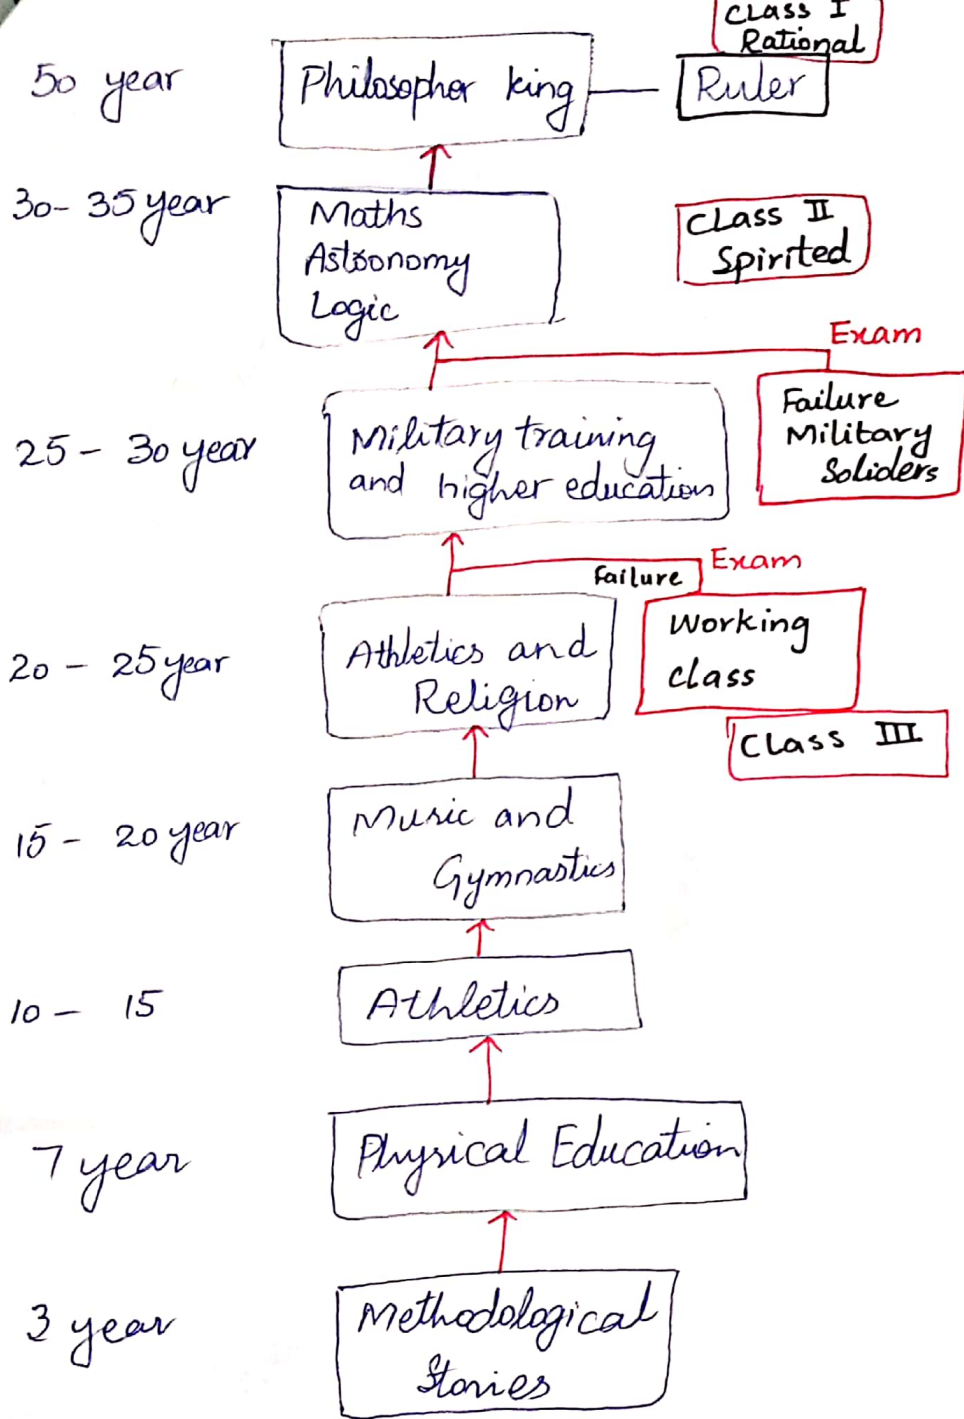 Class I
Rational
50 year
Philosopher king
Ruler
30- 35 year
Maths
Astronomy
Logic
Class II
Spirited
Exam
25 - 30 year
Military training
and higher education
Failure
Military
Soliders
Exam
Failure
20 - 25 year
Athletics and
Religion
Working
class
Class III
15 - 20 year
Music and
Gymnastics
10 - 15
Athletics
7 year
Physical Education
3 year
Methodological
Stories